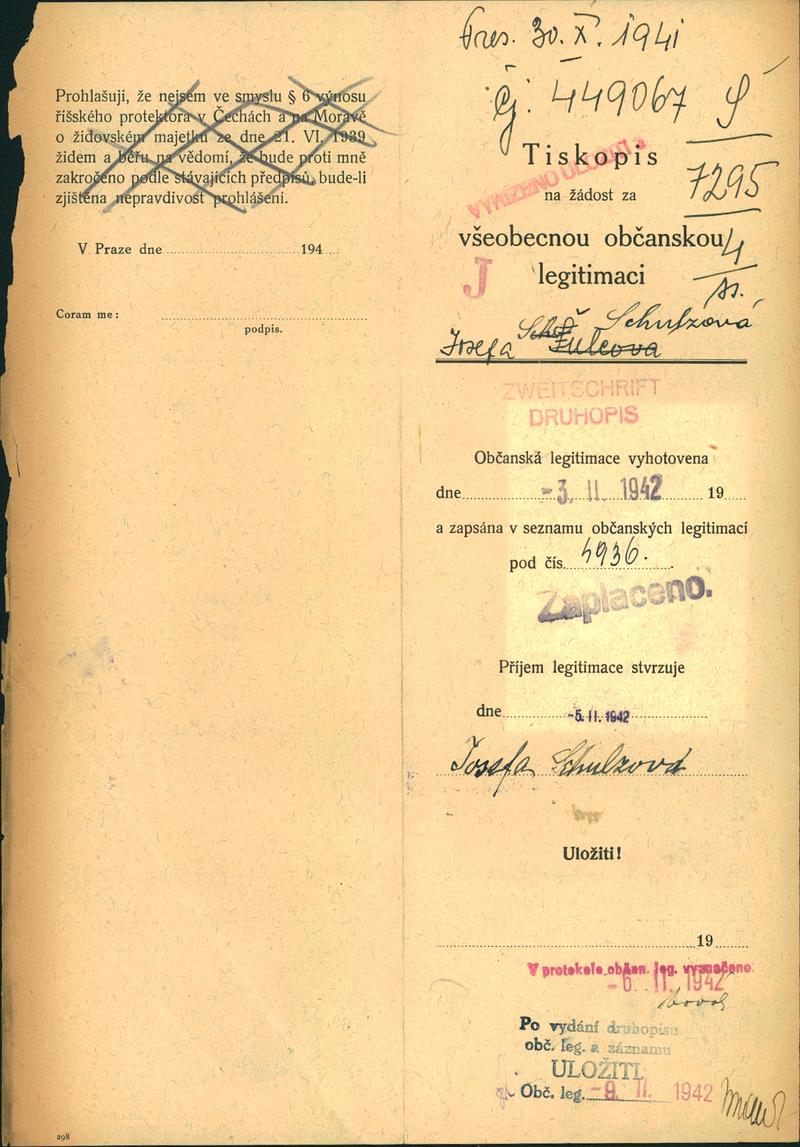 Prohlašuji, že nejsem ve smyslu § 6 výnosu
říšského protektora v Čechách a na Moravě
o židovském majetku ze dne 21. VI. 1939
židem a běřu na vědomí, že bude proti mně
zakročeno podle stávajících předpisů, bude-li
zjištěna nepravdivost prohlášení.
V Praze dne 194
Coram me:
podpis.
298
Pres. 30. X. 1941
Čj. 449067
7295
4
VYŘÍZENO
Tiskopis
na žádost za
všeobecnou občanskou
legitimaci
J
Schulzová
Josefa Šulcova
ZWEITSCHRIFT
DRUHOPIS
Občanská legitimace vyhotovena
dne -3. II. 1942 19
a zapsána v seznamu občanských legitimací
pod čís. 4936.
Zaplaceno.
Příjem legitimace stvrzuje
dne -5. II. 1942
Josefa Schulzová
Uložiti!
19
V protokole občan. leg. vyznačeno
-6. II. 1942
Po vydání druhopisu
obč. leg. a záznamu
ULOŽITI
Obč. leg. -9. II. 1942